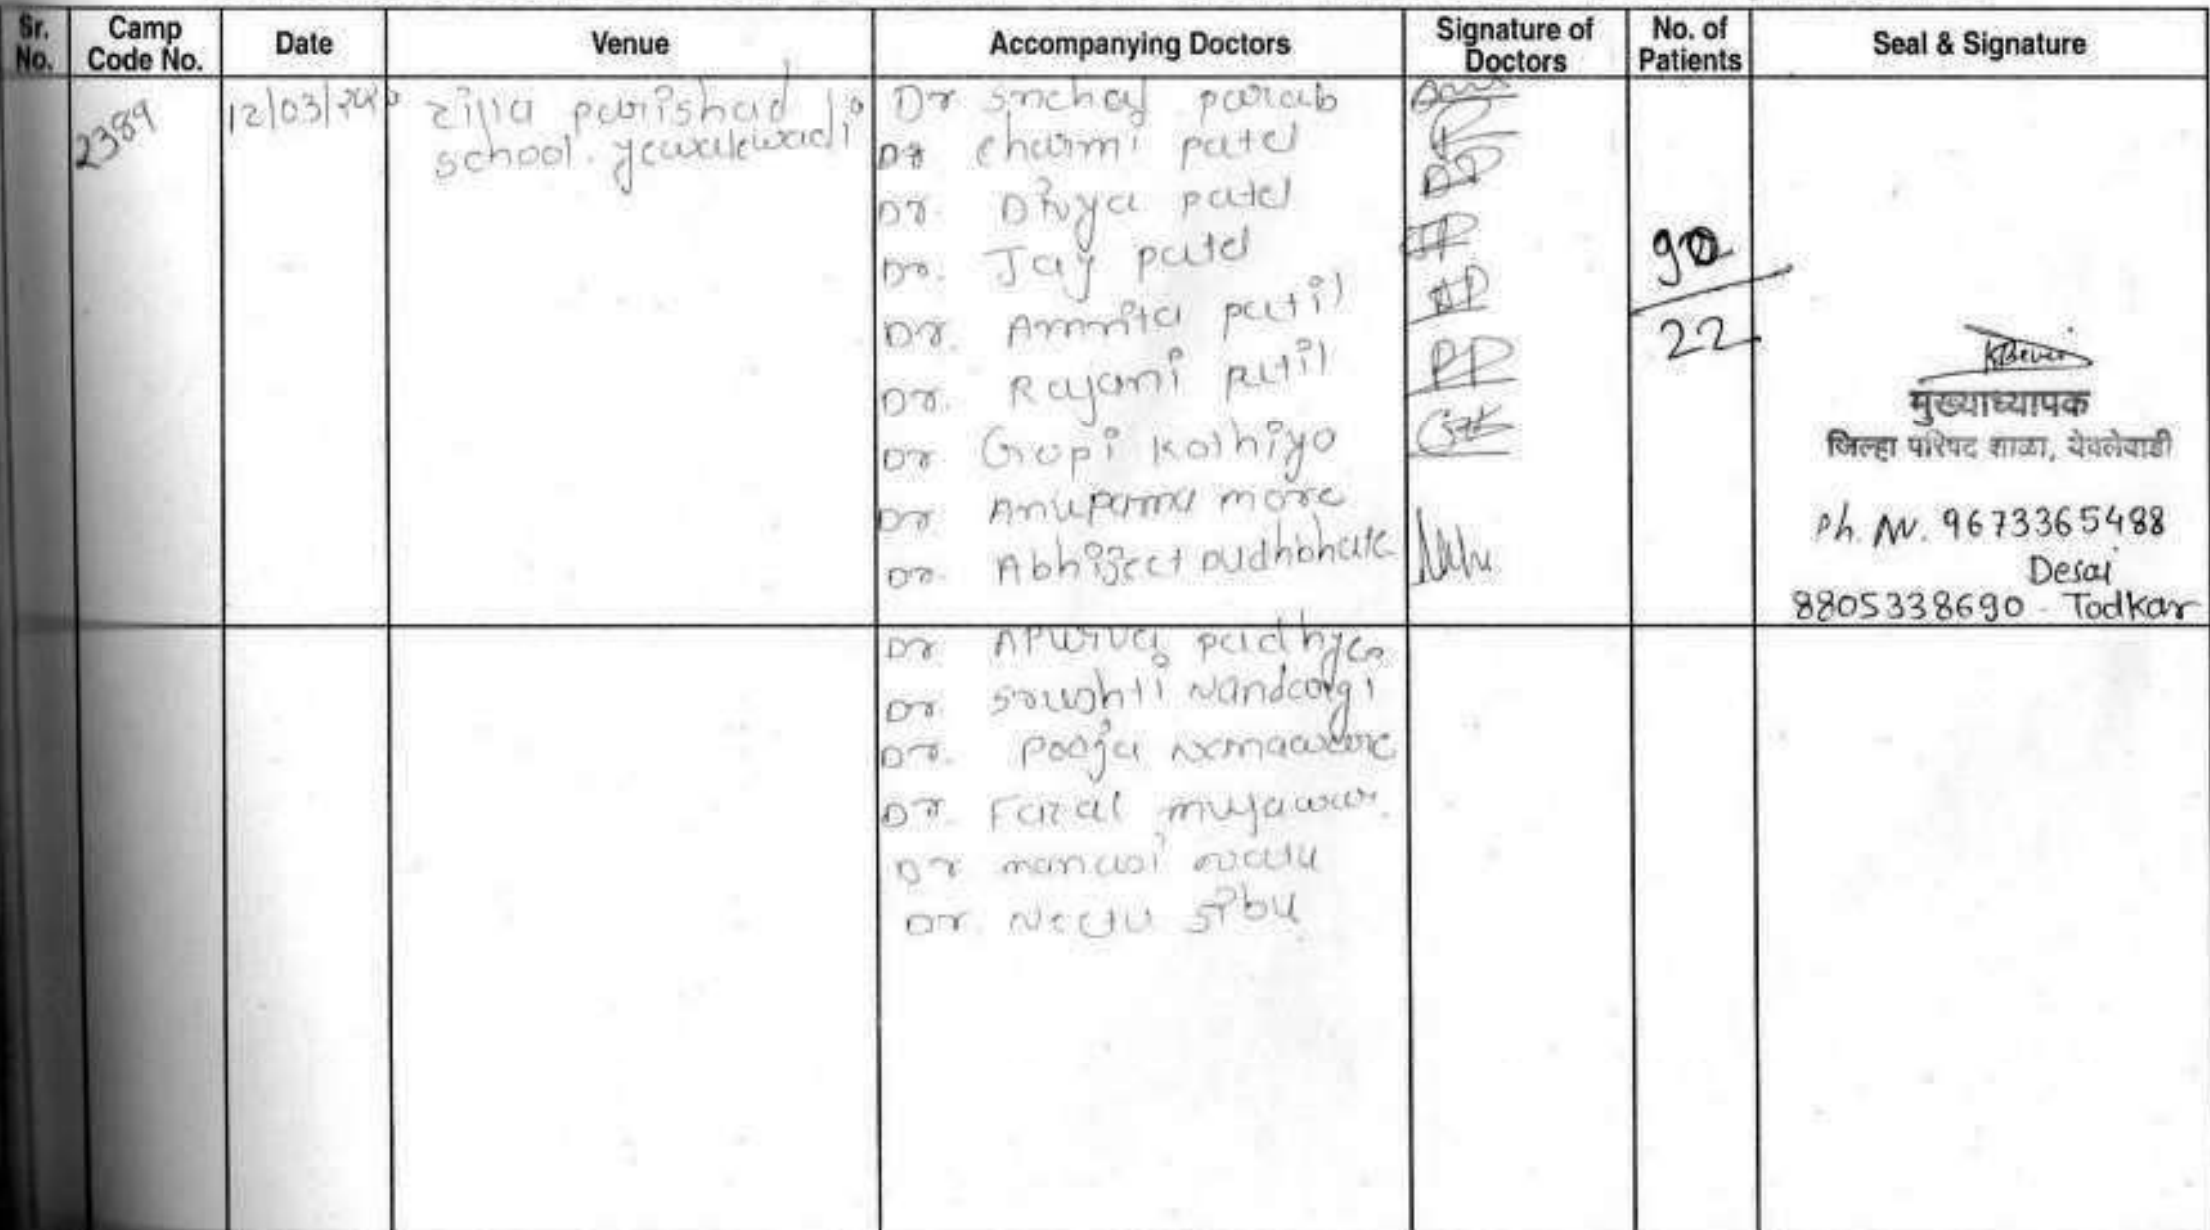 Sr. No. Camp Code No. Date Venue Accompanying Doctors Signature of Doctors No. of Patients Seal & Signature
2389
12/03/
zilla parishad
school. yewalewadi
Dr Snehal parab
Dr charmi patel
Dr. Divya patel
Dr. Jay patel
Dr. Amrita patil
Dr. Rajani patil
Dr Gopi Kothiya
Dr. Anupama more
Dr. Abhijeet Dudhbhate
DP
JP
AP
RP
GK
90
22
मुख्याध्यापक
जिल्हा परिषद शाळा, येवलेवाडी
Ph. No. 9673365488
Desai
8805338690 - Todkar
Dr Apurva padhye
Dr. Srushti Nandargi
Dr. Pooja
Dr. Fazal mujawar.
Dr manasi
Dr. Neetu Sibu